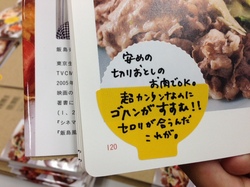 飯島
東京生
TVCM
2005年
映画の
著書に
(1、2
『シネマ
『飯島風
安めの
切りおとしの
お肉でOK。
超カンタンなのに
ゴハンがすすむ!!
セロリが合うんだ
これが。
120